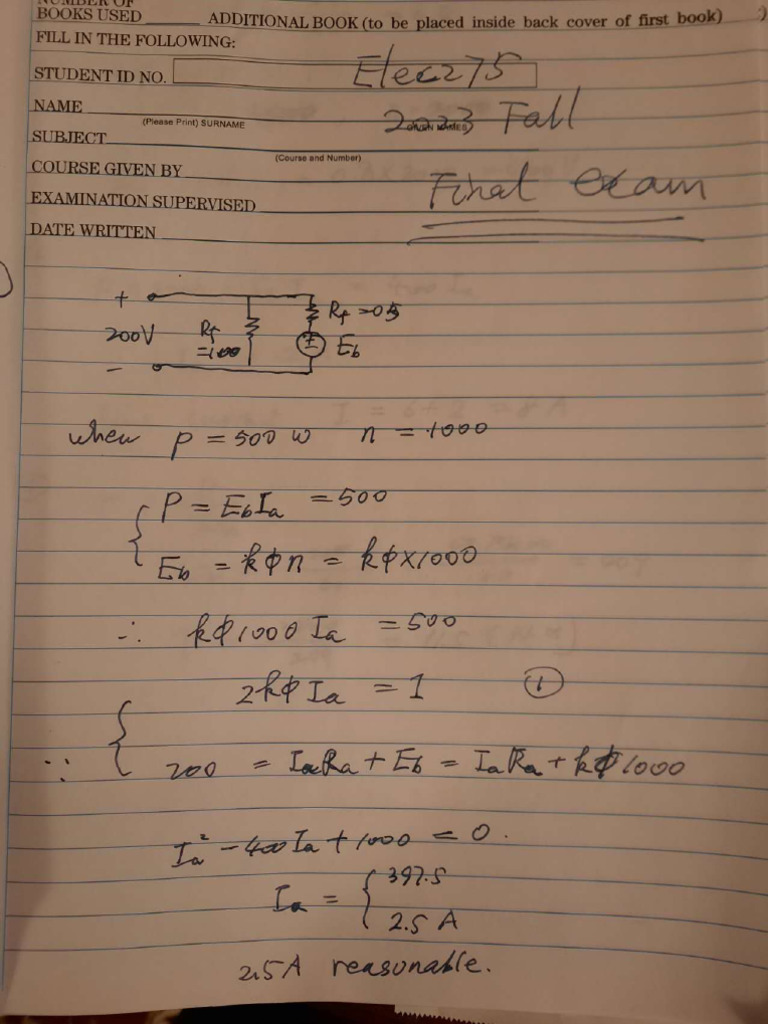 NUMBER OF
BOOKS USED ______ ADDITIONAL BOOK (to be placed inside back cover of first book)
FILL IN THE FOLLOWING:
STUDENT ID NO. Elec275
NAME 2023 Fall
(Please Print) SURNAME GIVEN NAMES
SUBJECT
(Course and Number)
COURSE GIVEN BY Final exam
EXAMINATION SUPERVISED
DATE WRITTEN
+
200V
-
Rf
=100
Rf=05
± Eb
when P = 500 W n = 1000
P = EbIa = 500
Eb = kϕn = kϕ×1000
∴ kϕ1000 Ia = 500
2kϕ Ia = 1 ①
∵ 200 = IaRa + Eb = IaRa + kϕ1000
Ia² - 400Ia + 1000 = 0.
Ia = { 397.5
2.5 A
2.5A reasonable.